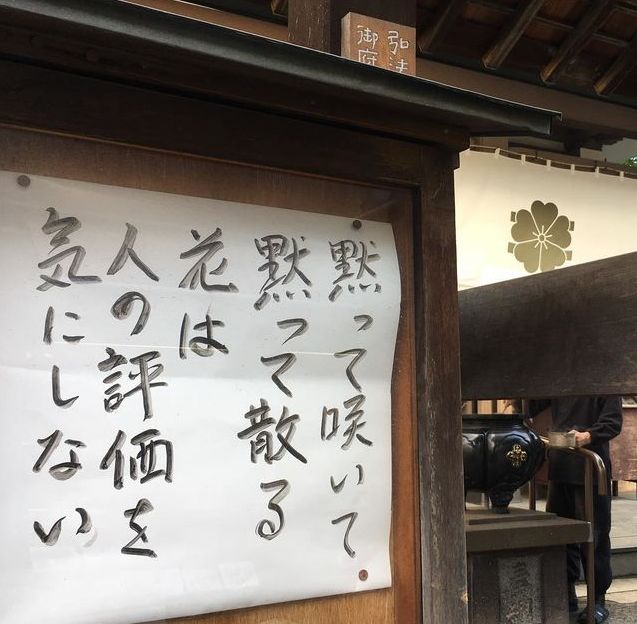 黙って咲いて
黙って散る
花は
人の評価を
気にしない
弘法
御府